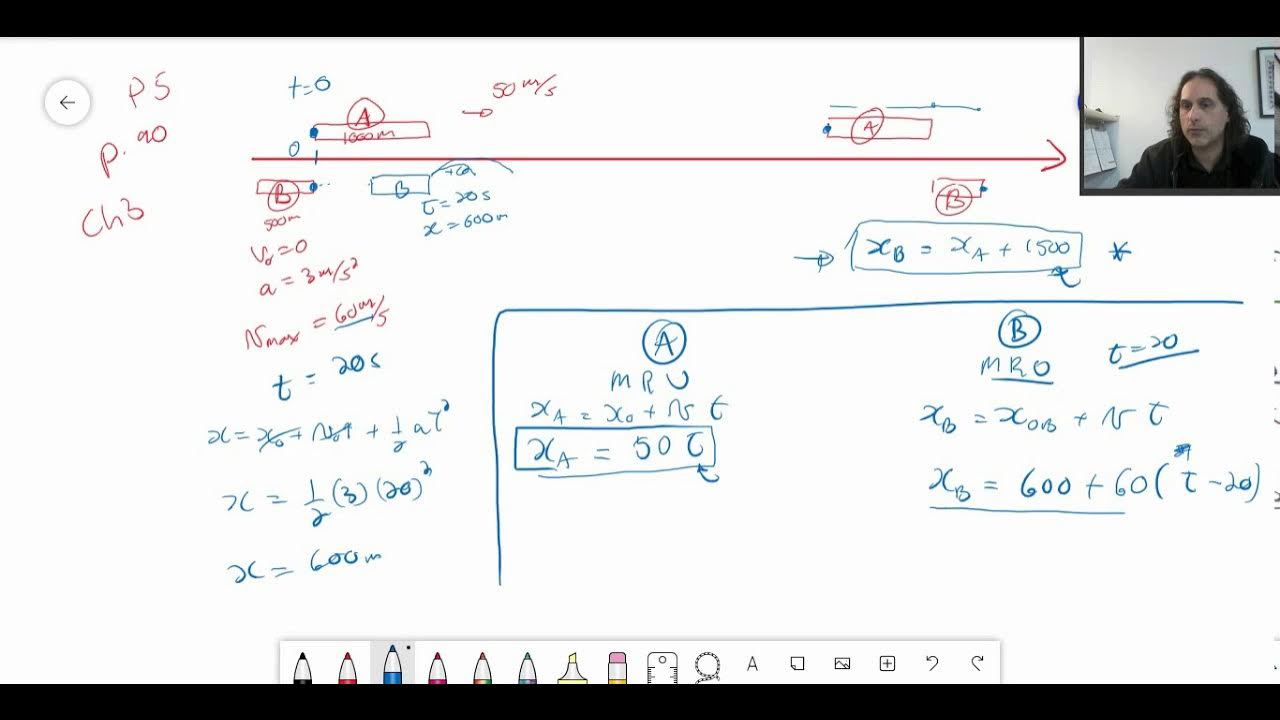 P5
p. 90
Ch3
t=0
A
1000m
→ 50 m/s
0
B
500m
B
+a
t=20s
x=600m
A
B
v₀=0
a = 3 m/s²
Vmax = 60 m/s
t = 20s
x = x₀ + v₀t + 1/2 at²
x = 1/2 (3) (20)²
x = 600m
→ x_B = x_A + 1500 *
A
MRU
x_A = x₀ + v t
x_A = 50 t
B
MRU
t=20
x_B = x_0B + v t
x_B = 600 + 60 (t - 20)
A